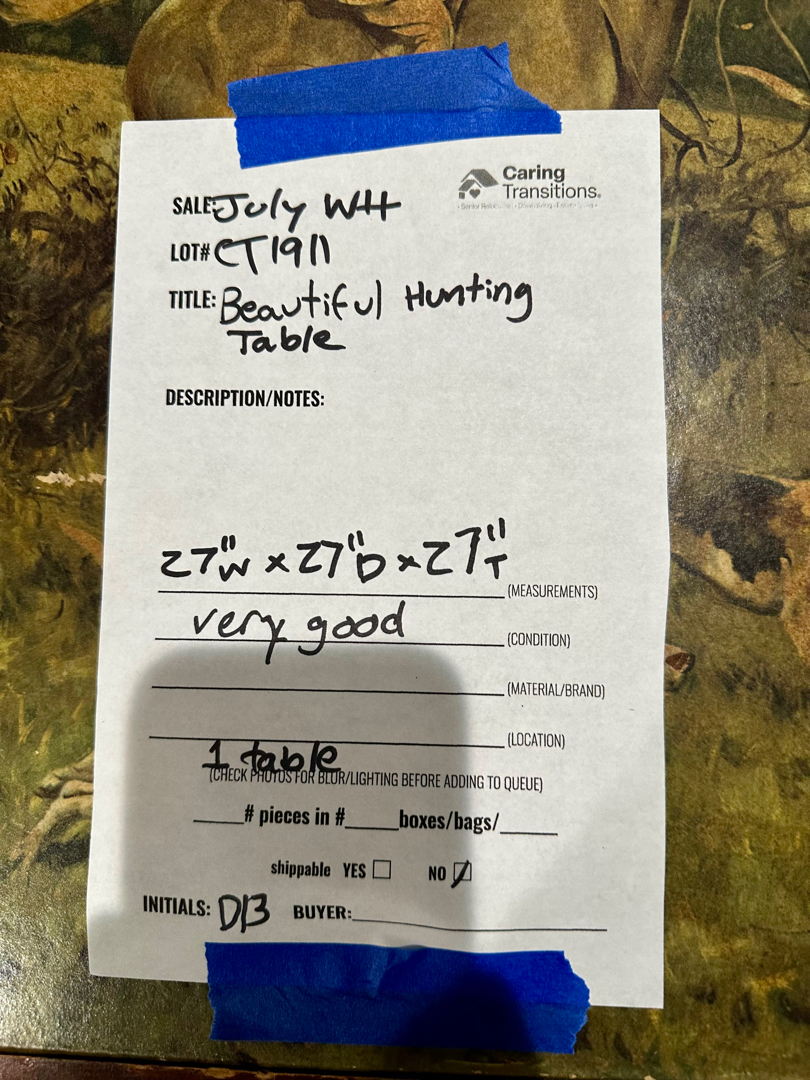 Caring
Transitions®
SALE: July WH
LOT# CT1911
TITLE: Beautiful Hunting
Table
DESCRIPTION/NOTES:
27"W x 27"D x 27"T
(MEASUREMENTS)
very good
(CONDITION)
(MATERIAL/BRAND)
(LOCATION)
1 table
(CHECK PHOTOS FOR BLUR/LIGHTING BEFORE ADDING TO QUEUE)
# pieces in # boxes/bags/
shippable YES NO
INITIALS: DB BUYER: